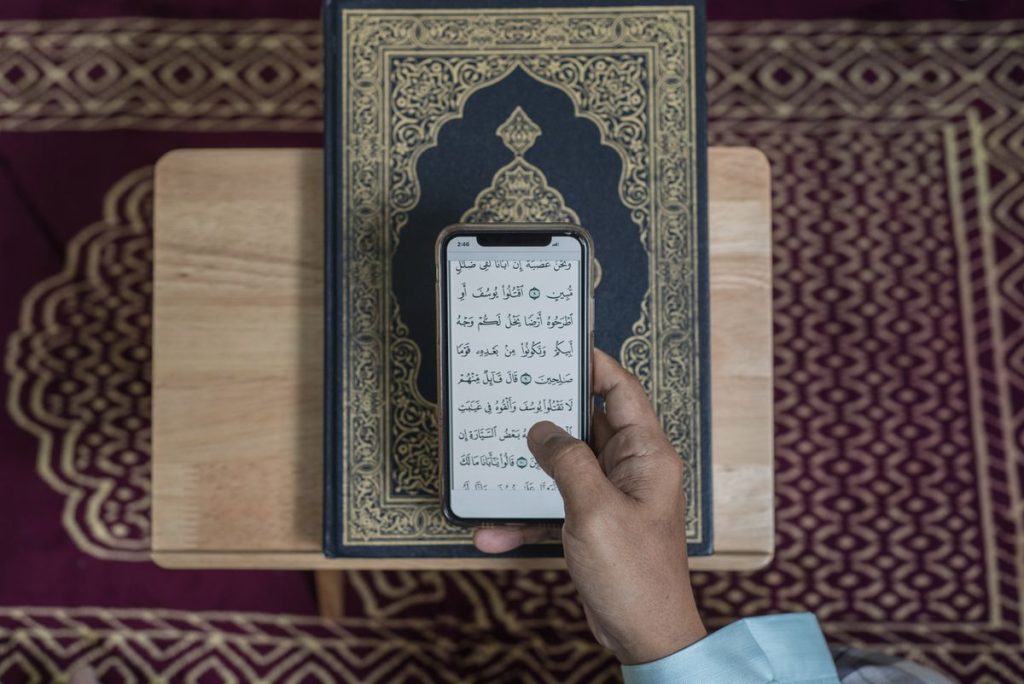 2:46
وَنَحْنُ عُصْبَةٌ إِنَّ أَبَانَا لَفِى ضَلَٰلٍ
مُّبِينٍ ٨ ٱقْتُلُوا۟ يُوسُفَ أَوِ
ٱطْرَحُوهُ أَرْضًا يَخْلُ لَكُمْ وَجْهُ
أَبِيكُمْ وَتَكُونُوا۟ مِنۢ بَعْدِهِۦ قَوْمًا
صَٰلِحِينَ ٩ قَالَ قَآئِلٌ مِّنْهُمْ
لَا تَقْتُلُوا۟ يُوسُفَ وَأَلْقُوهُ فِى غَيَٰبَتِ
بَعْضُ ٱلسَّيَّارَةِ إِن
١٠ قَالُوا۟ يَٰٓأَبَانَا مَا لَكَ